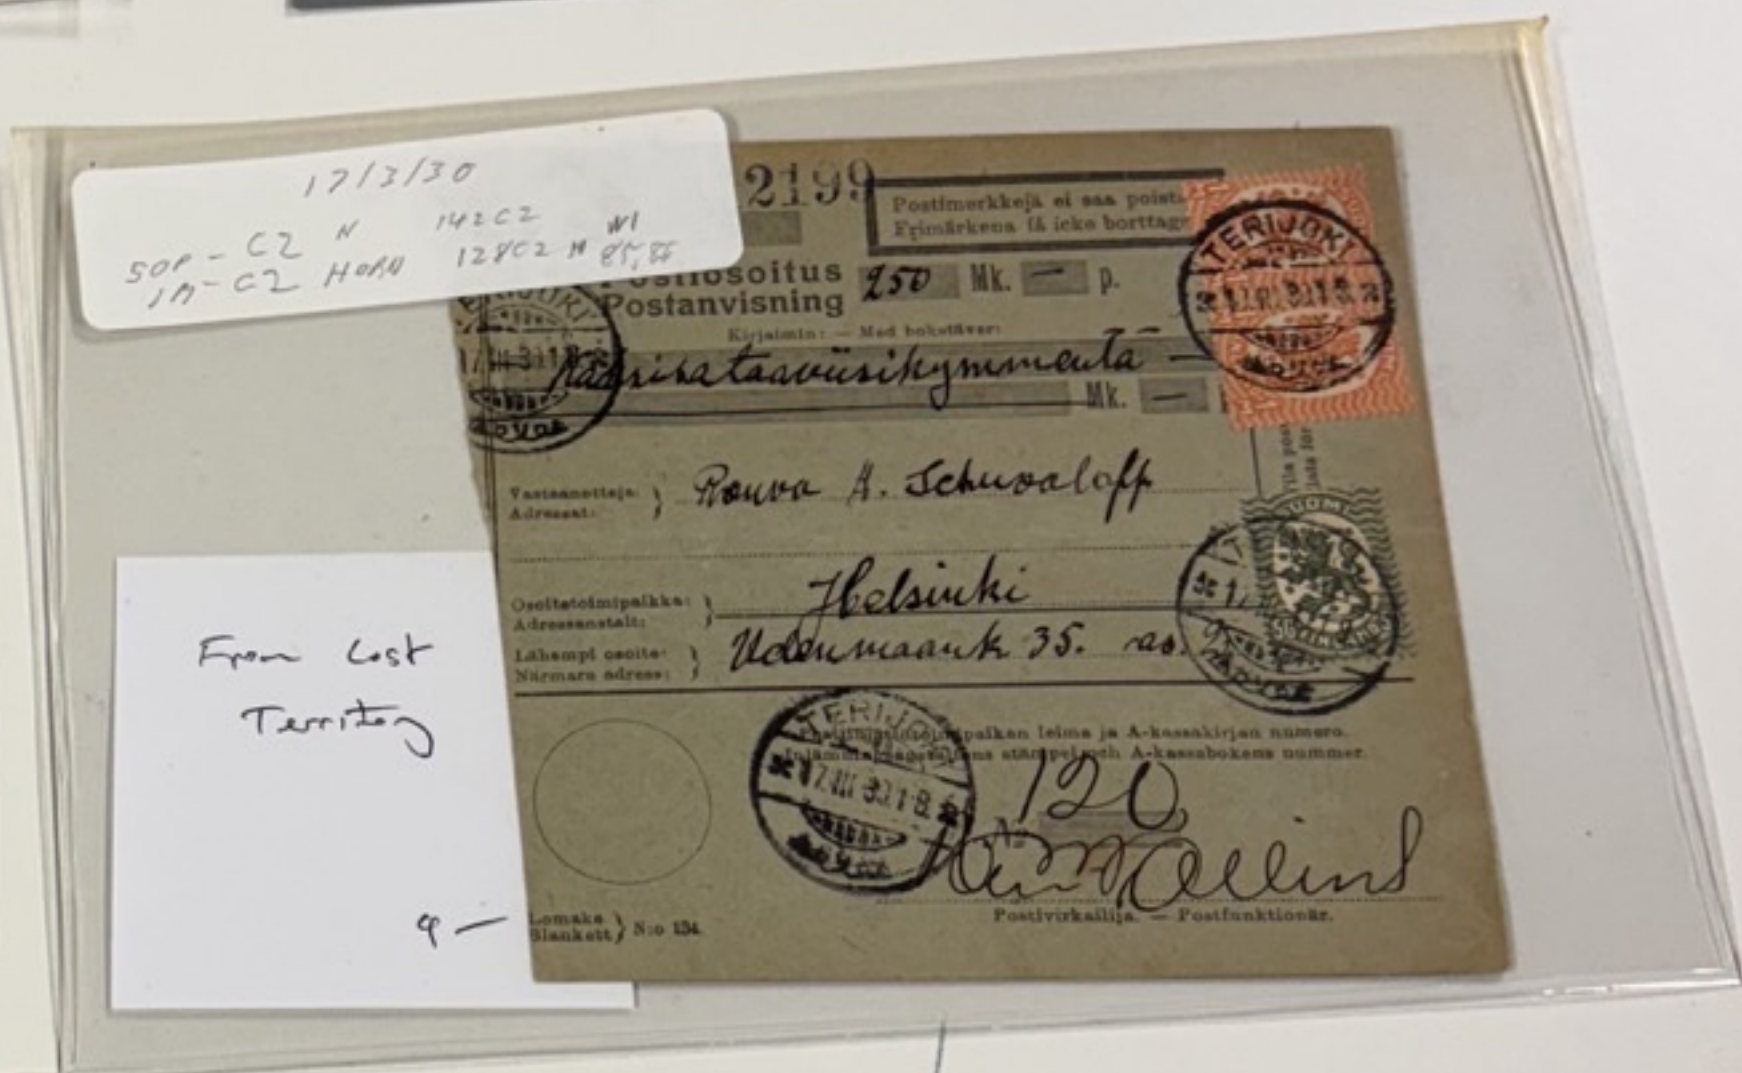 17/3/30
50P - C2 N 142C2
1M - C2 HORN 128C2 N
2199
Postimerkkejä ei saa poist
Frimärkena få icke borttag
Postiosoitus
Postanvisning
250 Mk. — p.
Kirjaimin: — Med bokstäver:
Kaksisataaviisikymmentä —
Mk. —
TERIJOKI
17.III.30.1-8.
Vastaanottaja:
Adressat:
Rouva A. Schuvaloff
SUOMI
Osoitetoimipaikka:
Adressanstalt:
Helsinki
Lähempi osoite:
Närmare adress:
Udenmaank 35. as.
TERIJOKI
17.III.30.1-8.
leima ja A-kassakirjan numero.
stämpel och A-kassabokens nummer.
120
Postivirkailija. — Postfunktionär.
Lomake
Blankett
N:o 134.
From Lost
Territory
9 —